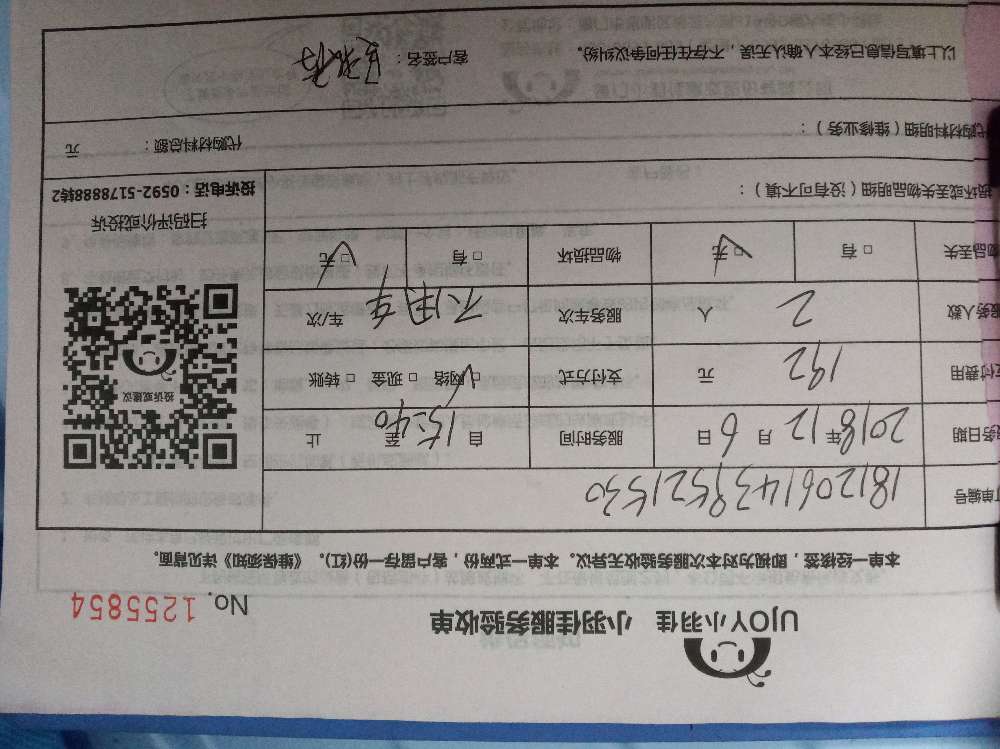 UJOY小羽佳 小羽佳服务验收单
No. 1255854
本单一经接签，即视为对本次服务验收无异议。本单一式两份，客户留存一份(红)。《维保须知》详见背面。
单编号 1812061439521530
务日期 2018年12月6日 服务时间 自15:40至 止
应付费用 192 元 支付方式 □网络 □现金 □转账
服务人数 2 人 服务车次 不用车 车/次
物品丢失 □有 □无 物品损坏 □有 □无
投诉或建议
扫码评价或投诉
投诉电话：0592-5178888转2
损坏或丢失物品明细（没有可不填）：
代购材料明细（维修业务）：
代购材料总额： 元
以上填写信息已经本人确认无误，不存在任何争议纠纷。 客户签名：